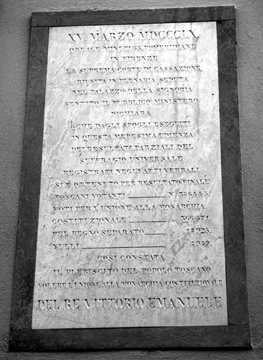 XV MARZO MDCCCLX
IN FIRENZE
LA SUPREMA CORTE DI CASSAZIONE
RIUNITA IN PLENARIA SEDUTA
NEL PALAZZO DELLA SIGNORIA
SENTITO IL PUBBLICO MINISTERO
DICHIARA
CHE DAGLI SPOGLI ESEGUITI
IN QUESTA MEDESIMA UDIENZA
DEI RESULTATI PARZIALI DEL
SUFFRAGIO UNIVERSALE
REGISTRATI NEGLI ATTI VERBALI
SI È OTTENUTO PER RESULTATO FINALE
TOSCANI VOTANTI
VOTI PER L'UNIONE ALLA MONARCHIA
COSTITUZIONALE 366571
PEL REGNO SEPARATO 14925
NULLI
COSÌ CONSTATA
IL PLEBISCITO DEL POPOLO TOSCANO
VOLERE L'UNIONE ALLA MONARCHIA COSTITUZIONALE
DEL RE VITTORIO EMANUELE